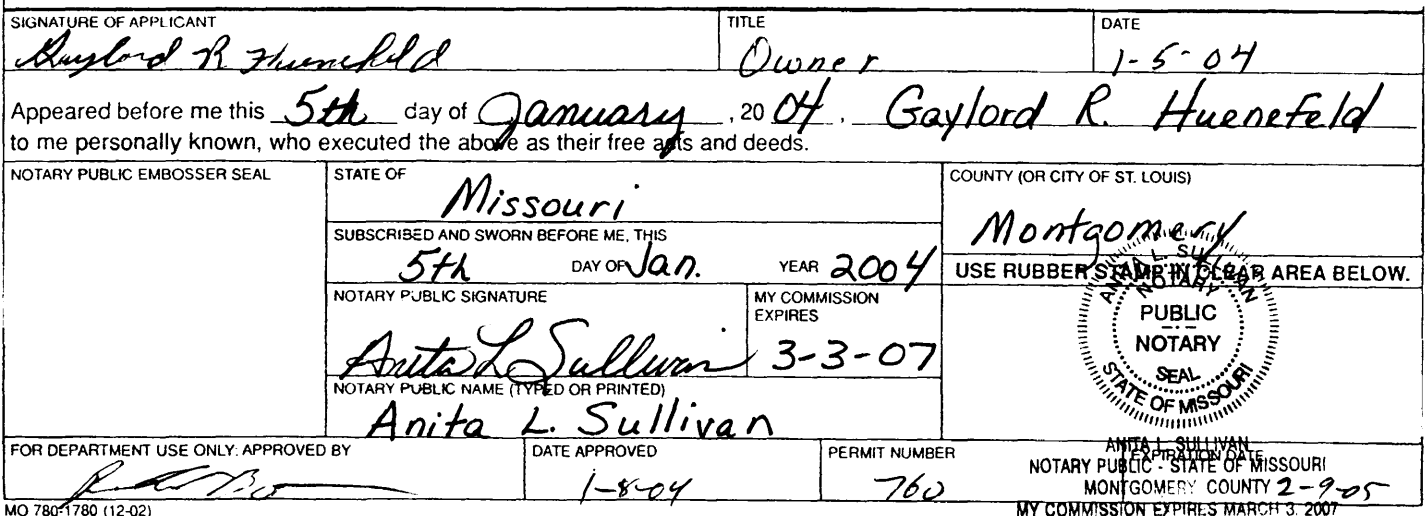 SIGNATURE OF APPLICANT TITLE DATE
Gaylord R Huenefeld Owner 1-5-04
Appeared before me this 5th day of January, 20 04, Gaylord R. Huenefeld
to me personally known, who executed the above as their free acts and deeds.
NOTARY PUBLIC EMBOSSER SEAL STATE OF COUNTY (OR CITY OF ST. LOUIS)
Missouri Montgomery
SUBSCRIBED AND SWORN BEFORE ME, THIS
5th DAY OF Jan. YEAR 2004
USE RUBBER STAMP IN CLEAR AREA BELOW.
NOTARY PUBLIC SIGNATURE MY COMMISSION EXPIRES
Anita L Sullivan 3-3-07
NOTARY PUBLIC NAME (TYPED OR PRINTED)
Anita L. Sullivan
ANITA L. SULLIVAN
NOTARY
PUBLIC
NOTARY
SEAL
STATE OF MISSOURI
FOR DEPARTMENT USE ONLY: APPROVED BY DATE APPROVED PERMIT NUMBER EXPIRATION DATE
1-8-04 760 2-9-05
ANITA L. SULLIVAN
NOTARY PUBLIC - STATE OF MISSOURI
MONTGOMERY COUNTY
MY COMMISSION EXPIRES MARCH 3, 2007
MO 780-1780 (12-02)